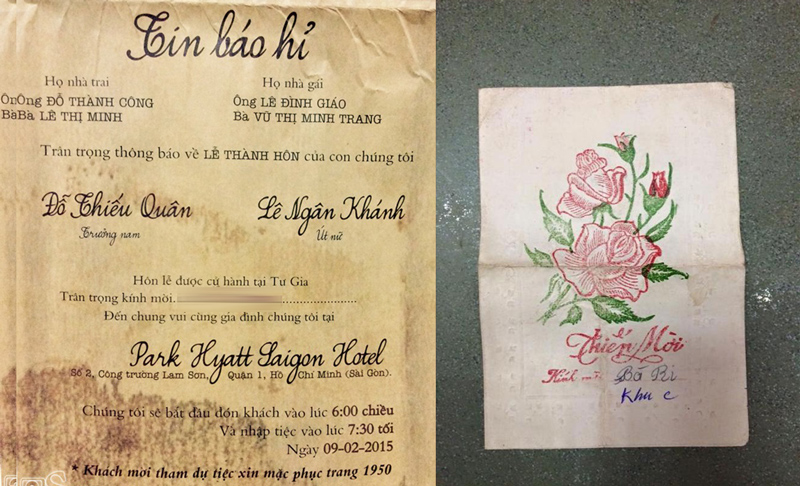 Tin báo hỉ
Họ nhà trai
ÔnÔng ĐỖ THÀNH CÔNG
BàBà LÊ THỊ MINH
Họ nhà gái
Ông LÊ ĐÌNH GIÁO
Bà VŨ THỊ MINH TRANG
Trân trọng thông báo về LỄ THÀNH HÔN của con chúng tôi
Đỗ Thiếu Quân
Trưởng nam
Lê Ngân Khánh
Út nữ
Hôn lễ được cử hành tại Tư Gia
Trân trọng kính mời
Đến chung vui cùng gia đình chúng tôi tại
Park Hyatt Saigon Hotel
Số 2, Công trường Lam Sơn, Quận 1, Hồ Chí Minh (Sài Gòn).
Chúng tôi sẽ bắt đầu đón khách vào lúc 6:00 chiều
Và nhập tiệc vào lúc 7:30 tối
Ngày 09-02-2015
* Khách mời tham dự tiệc xin mặc phục trang 1950
Thiếp Mời
Kính mời Bố Ri
Khu C